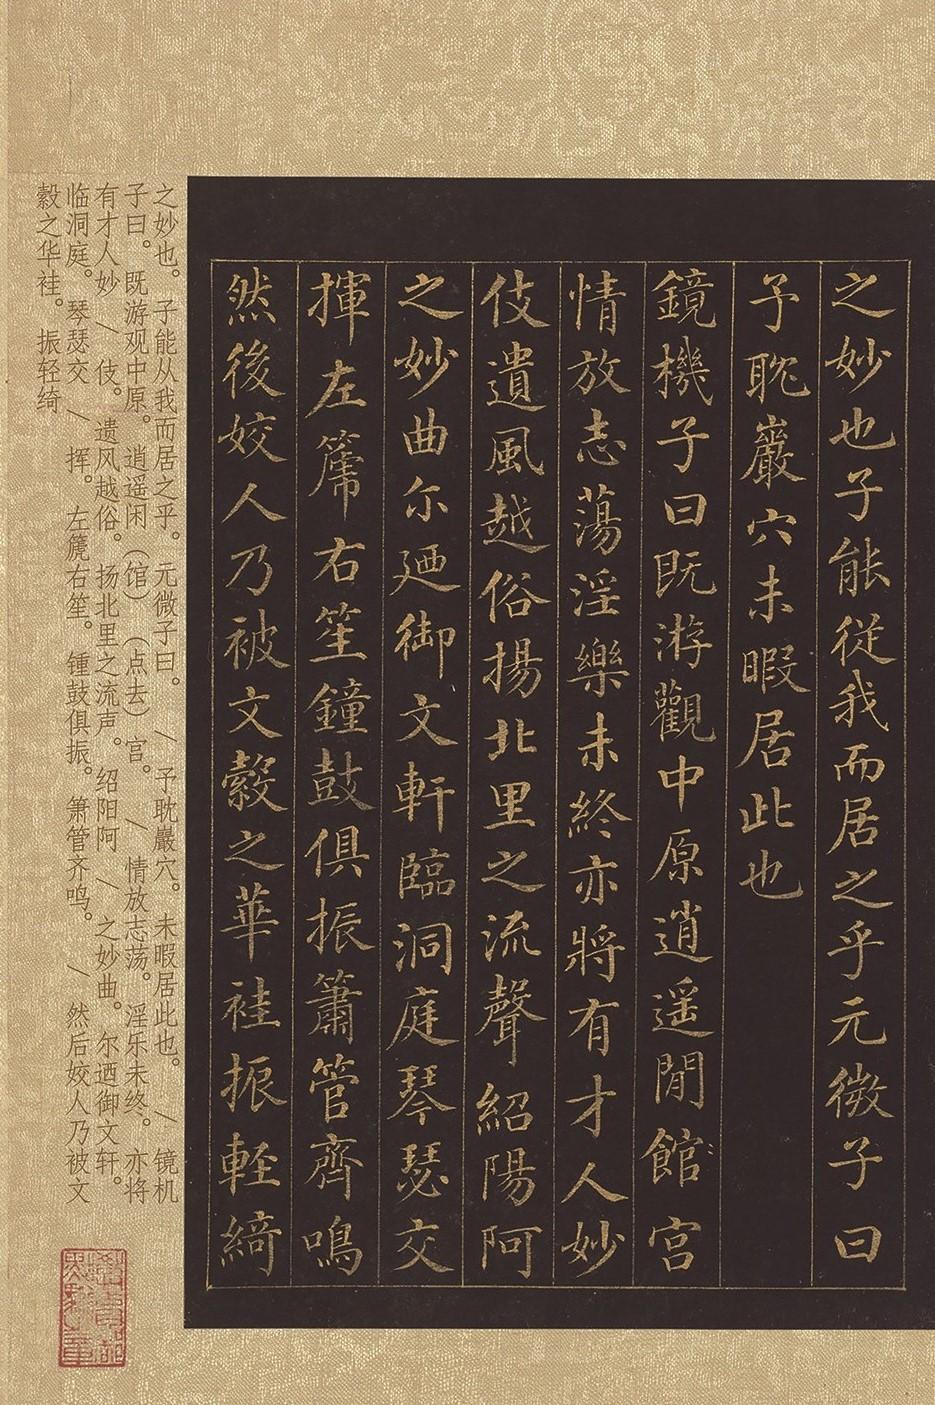 之妙也子能從我而居之乎元微子曰
予耽巖穴未暇居此也
鏡機子曰既游觀中原逍遥閒館宮
情放志蕩淫樂未終亦將有才人妙
伎遺風越俗揚北里之流聲紹陽阿
之妙曲尓廼御文軒臨洞庭琴瑟交
揮左篪右笙鐘鼓俱振簫管齊鳴
然後姣人乃被文縠之華袿振輕綺
之妙也。子能从我而居之乎。元微子曰。/予耽巖穴。未暇居此也。/镜机
子曰。既游观中原。逍遥闲（馆）（点去）宫。/情放志荡。淫乐未终。亦将
有才人妙/伎。遗风越俗。扬北里之流声。绍阳阿/之妙曲。尔迺御文轩。
临洞庭。琴瑟交/挥。左篪右笙。锺鼓俱振。箫管齐鸣。/然后姣人乃被文
縠之华袿。振轻绮